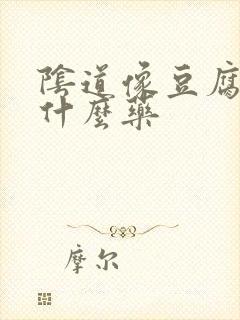 陰道像豆腐
什麼藥
摩尔